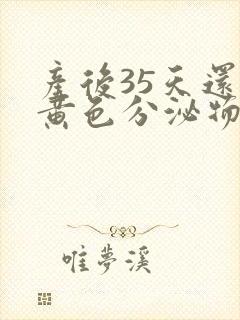 產後35天還
黃色分泌物
唯夢溪